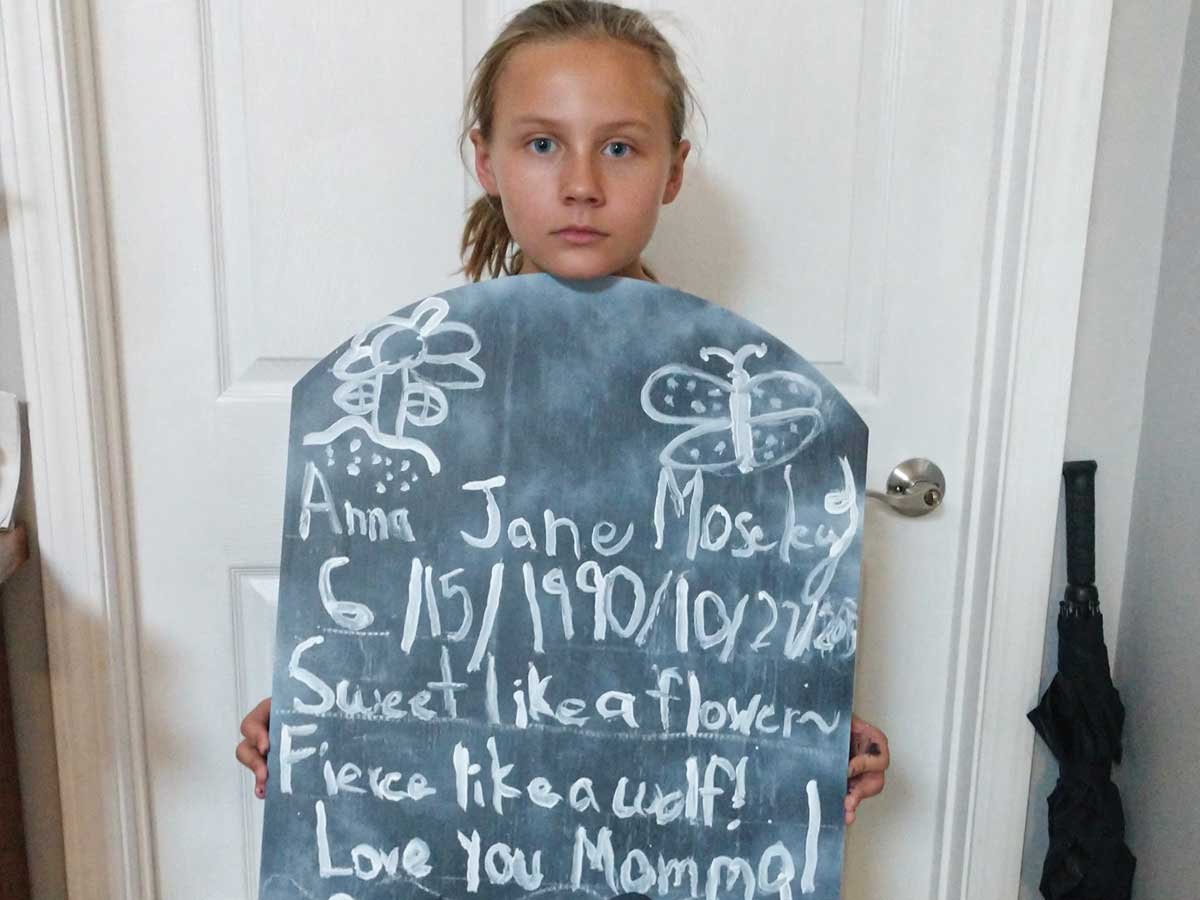 Anna Jane Moseley
6/15/1990/10/22/
Sweet like a flower~
Fierce like a wolf!
Love You Momma!